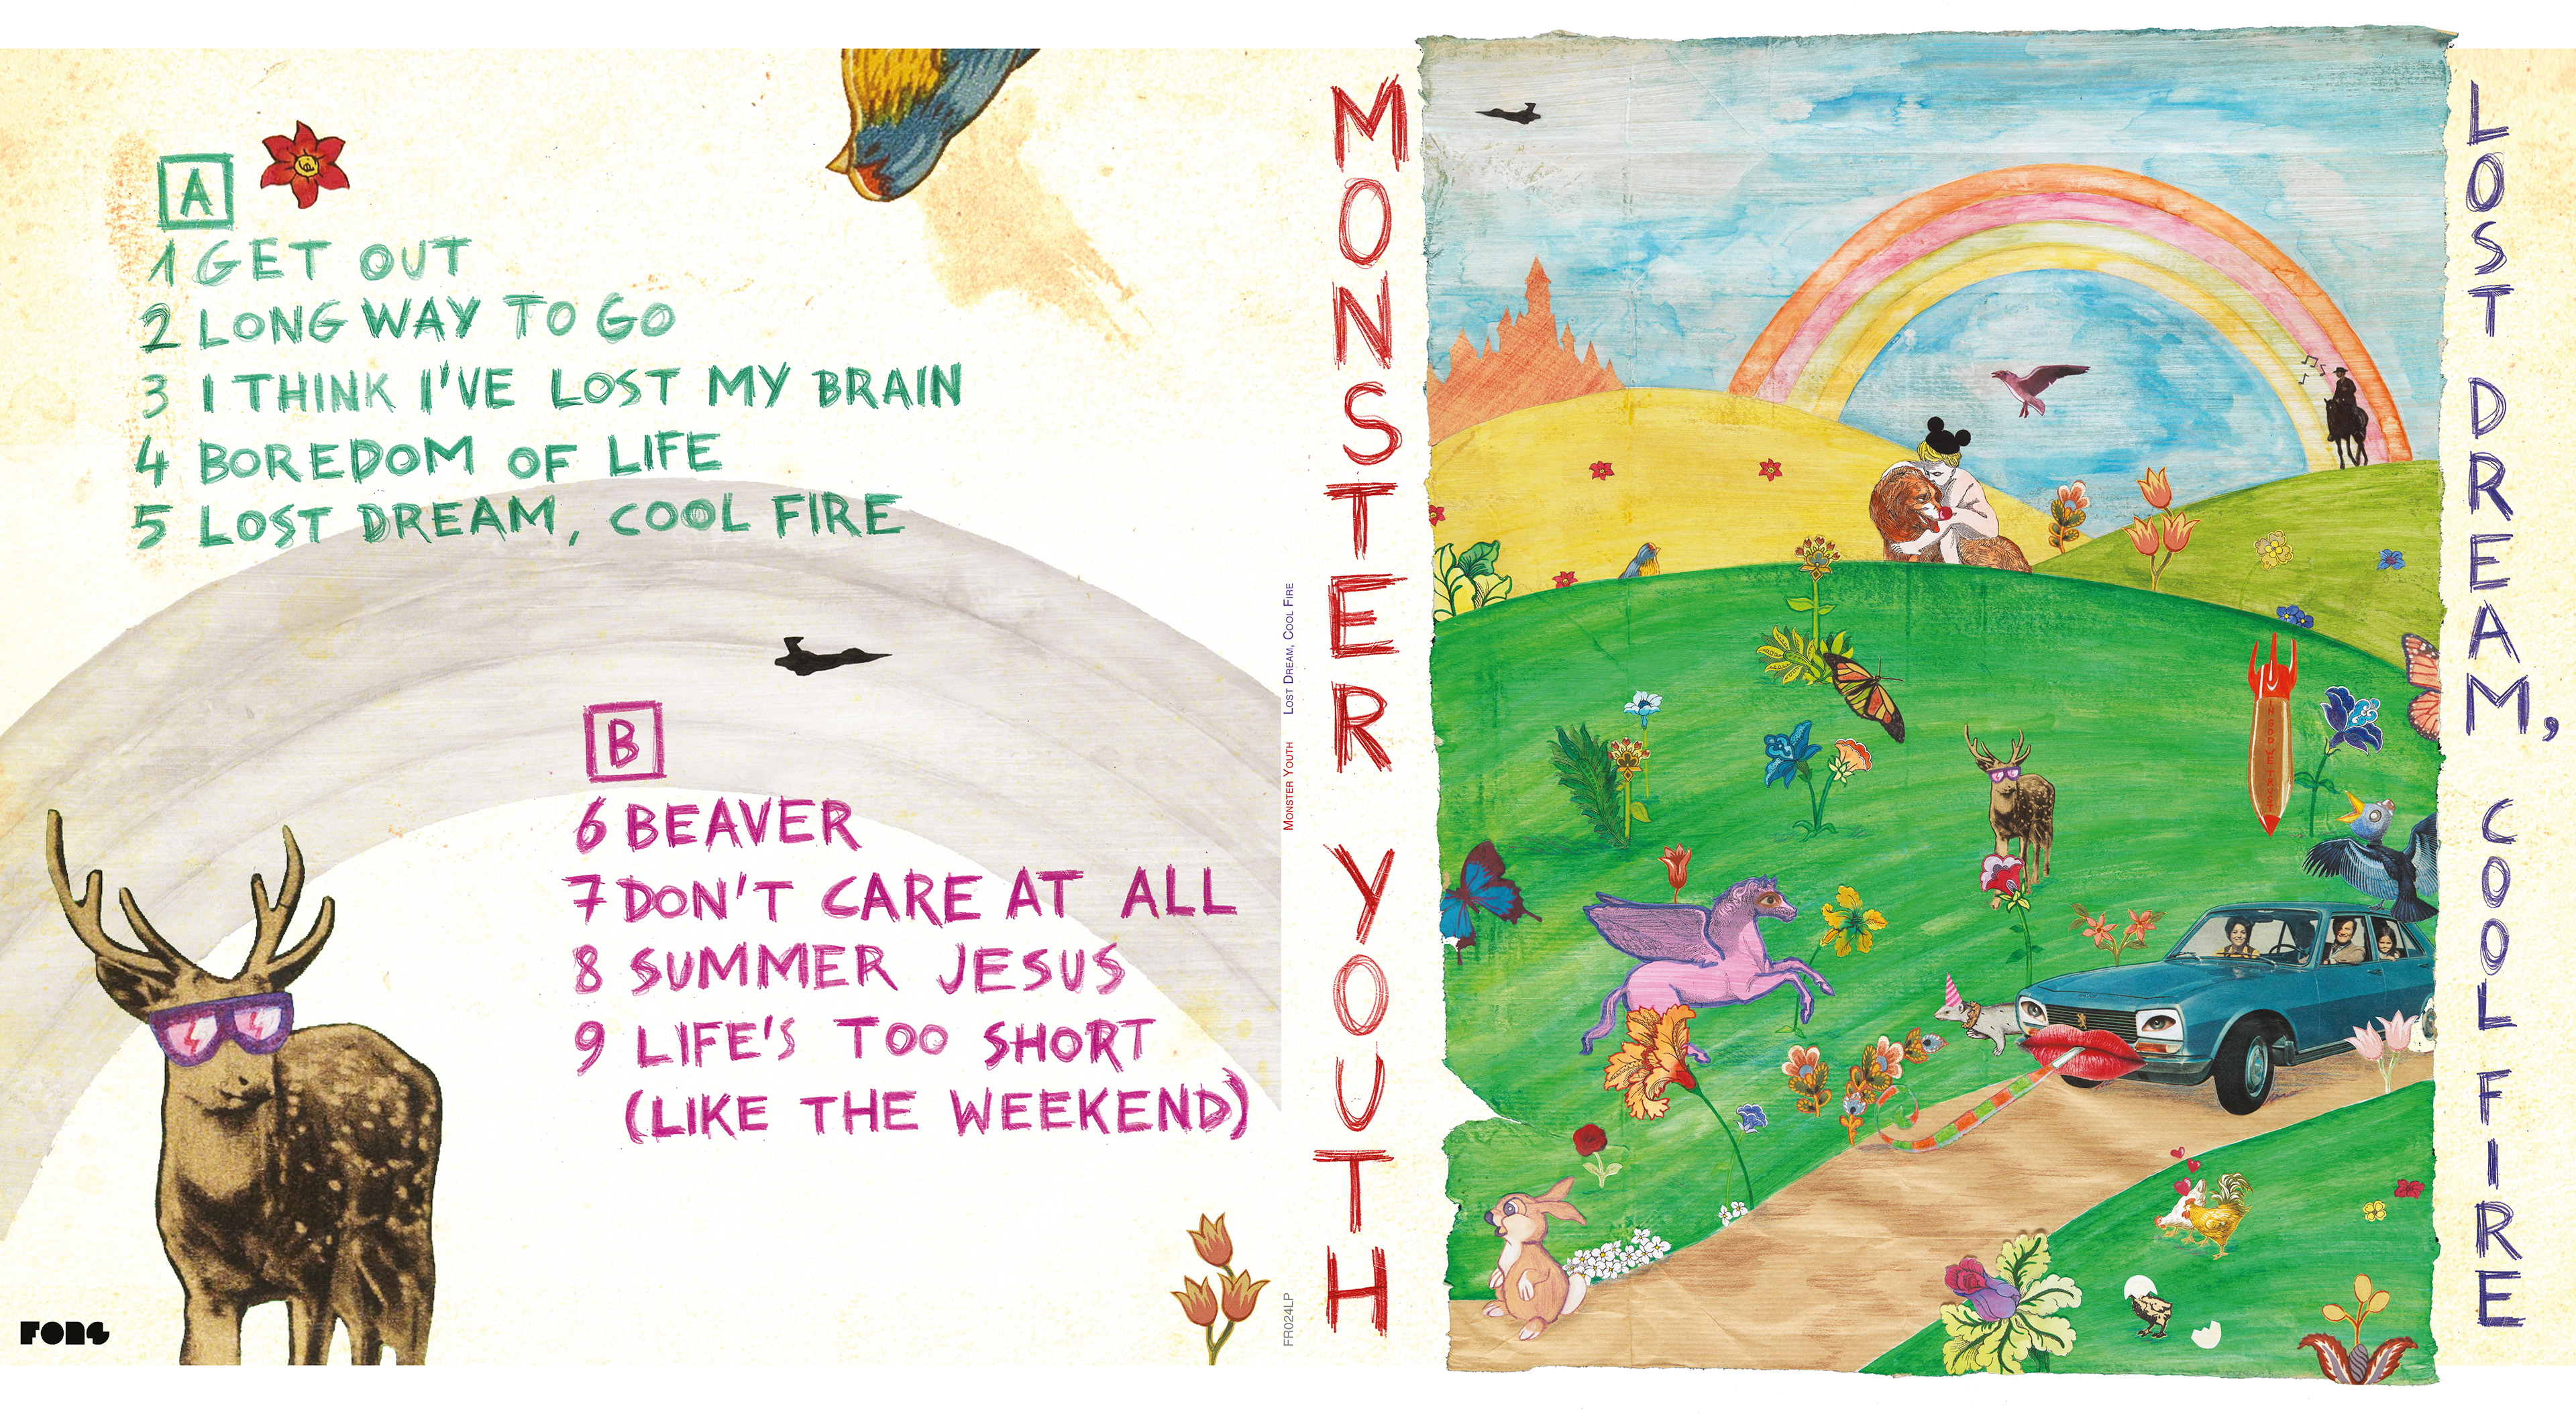 A
1 GET OUT
2 LONG WAY TO GO
3 I THINK I'VE LOST MY BRAIN
4 BOREDOM OF LIFE
5 LOST DREAM, COOL FIRE
B
6 BEAVER
7 DON'T CARE AT ALL
8 SUMMER JESUS
9 LIFE'S TOO SHORT
(LIKE THE WEEKEND)
FONS
MONSTER YOUTH LOST DREAM, COOL FIRE
FR024LP
MONSTER YOUTH
IN GOD WE TRUST
LOST DREAM, COOL FIRE